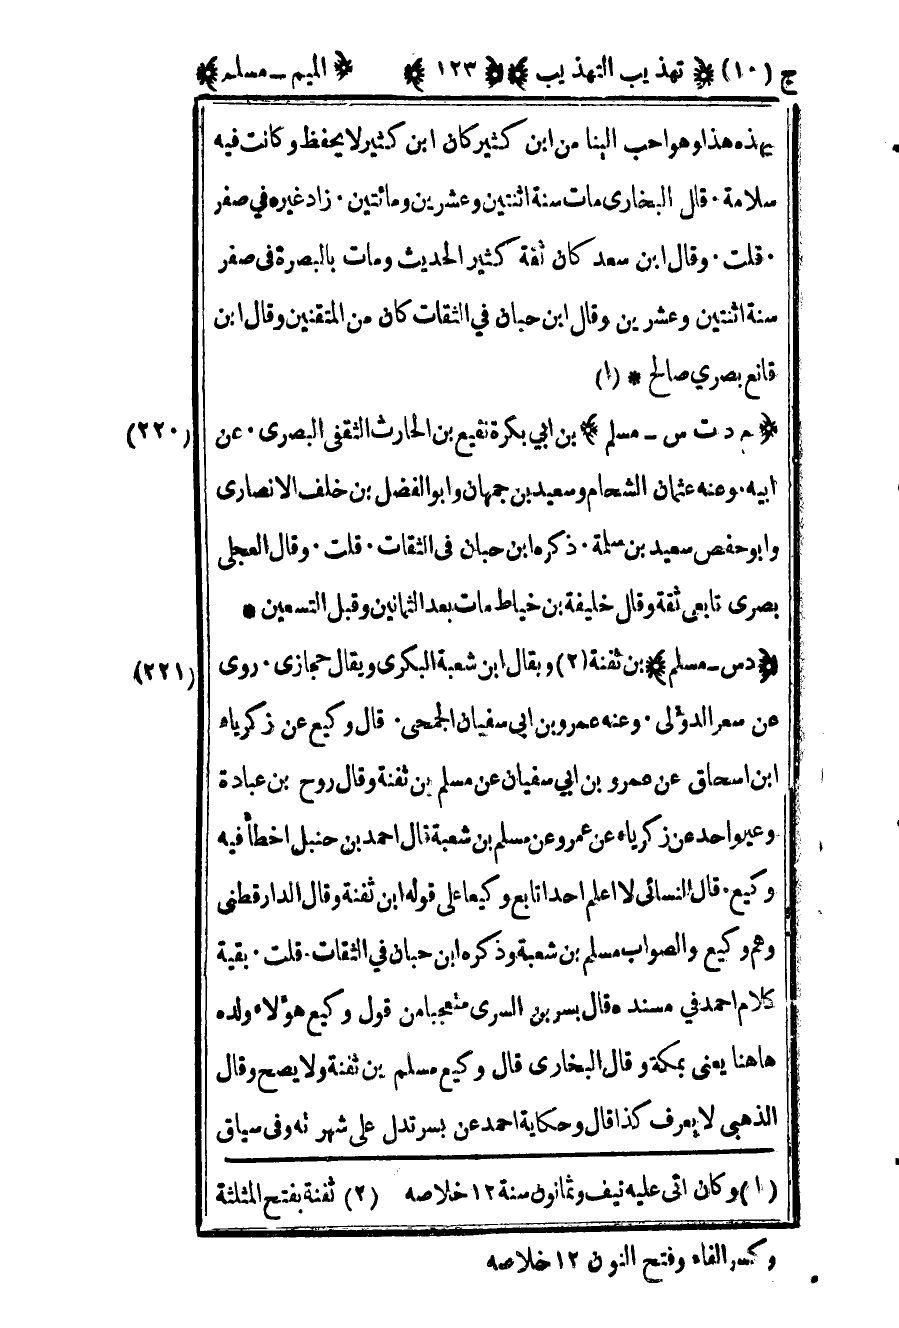 ج (١٠) ﴿ تهذيب التهذيب ﴾ ﴿ ١٢٣ ﴾ ﴿ الميم ـ مسلم ﴾
بهذه هذا وهو احب الينا من ابن كثير كان ابن كثير لا يحفظ وكانت فيه
سلامة · قال البخارى مات سنة اثنتين وعشرين ومائتين · زاد غيره في صفر
· قلت · وقال ابن سعد كان ثقة كثير الحديث ومات بالبصرة فى صفر
سنة اثنتين وعشرين وقال ابن حبان في الثقات كان من المتقنين وقال ابن
قانع بصري صالح * (١)
﴿ م د ت س ـ مسلم ﴾ بن ابي بكرة نفيع بن الحارث الثقفى البصرى · عن (٢٢٠)
ابيه · وعنه عثمان الشحام وسعيد بن جمهان وابو الفضل بن خلف الانصارى
وابو حفص سعيد بن سلمة · ذكره ابن حبان فى الثقات · قلت · وقال العجلى
بصرى تابعى ثقة وقال خليفة بن خياط مات بعد الثمانين وقبل التسعين *
﴿ د س ـ مسلم ﴾ بن ثفنة (٢) ويقال ابن شعبة البكرى ويقال حجازى · روى (٢٢١)
عن سعر الدؤلى · وعنه عمرو بن ابى سفيان الجمحى · قال وكيع عن زكرياء
ابن اسحاق عن عمرو بن ابي سفيان عن مسلم بن ثفنة وقال روح بن عبادة
وغير واحد عن زكرياء عن عمرو عن مسلم بن شعبة قال احمد بن حنبل اخطأ فيه
وكيع · قال النسائى لا اعلم احدا تابع وكيعا على قوله ابن ثفنة وقال الدارقطنى
وهم وكيع والصواب مسلم بن شعبة وذكره ابن حبان في الثقات · قلت · بقية
كلام احمد في مسنده قال بسر بن السرى متعجبا من قول وكيع هؤلاء ولده
هاهنا يعنى بمكة وقال البخارى قال وكيع مسلم بن ثفنة ولا يصح وقال
الذهبى لا يعرف كذا قال وحكاية احمد عن بسر تدل على شهرته وفى سياق
(١) وكان اتى عليه نيف وثمانون سنة ١٢ خلاصه (٢) ثفنة بفتح المثلثة
وكسر الفاء وفتح النون ١٢ خلاصه